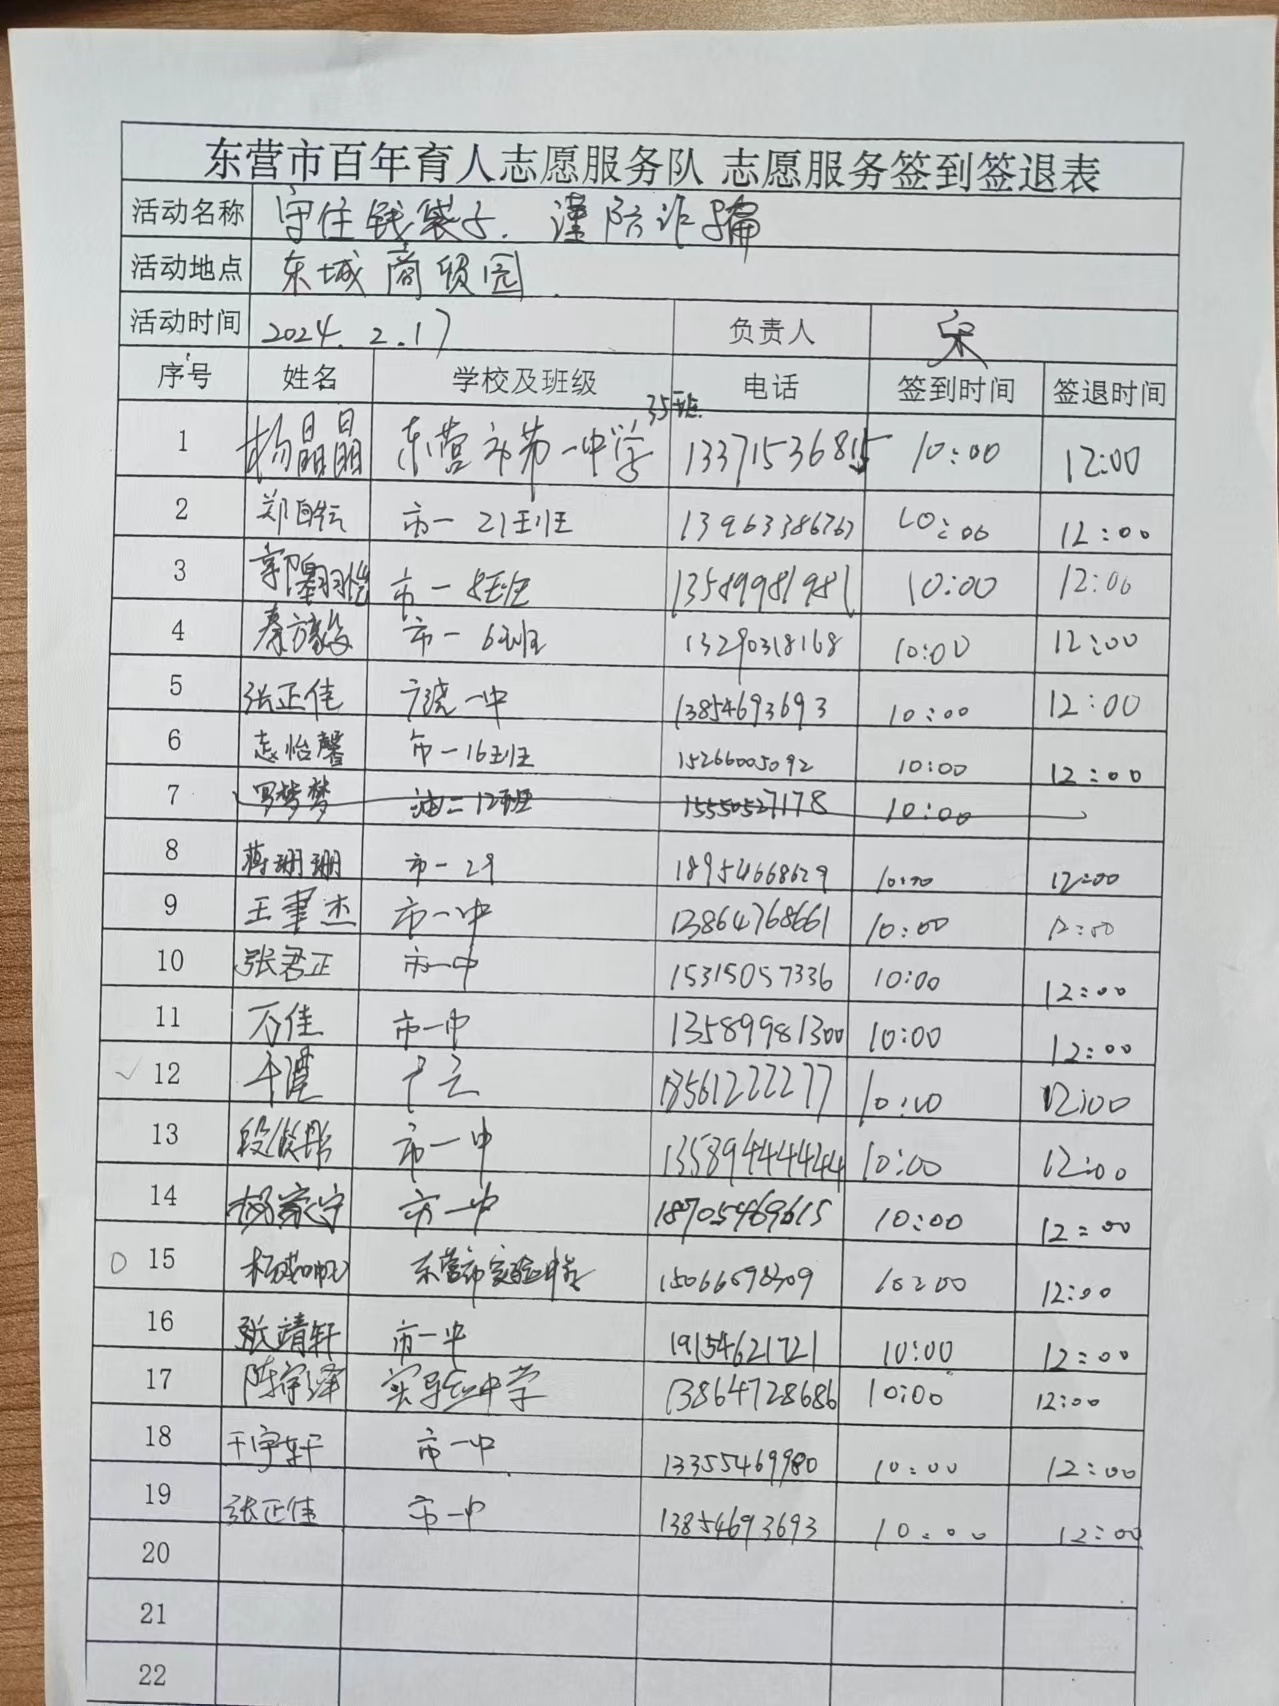 东营市百年育人志愿服务队 志愿服务签到签退表
活动名称 守住钱袋子. 谨防诈骗
活动地点 东城商贸园.
活动时间 2024. 2. 17 负责人 宋
序号 姓名 学校及班级 电话 签到时间 签退时间
35班
1 杨晶晶 东营市第一中学 13371536815 10:00 12:00
2 市一 21班 13963386767 10:00 12:00
3 市一 13589981981 10:00 12:00
4 市一 6班 13290318168 10:00 12:00
5 张正佳 一中 13854693693 10:00 12:00
6 怡馨 市一16班 15266005092 10:00 12:00
7 罗梦梦 油二 12班 15550527178 10:00
8 蒋珊珊 市一 29 18954668629 10:00 12:00
9 王聿杰 市一中 13864768661 10:00 12:00
10 张君正 市一中 15315057336 10:00 12:00
11 万佳 市一中 13589981300 10:00 12:00
12 18561222277 10:00 12:00
13 市一中 13589444444 10:00 12:00
14 杨家宁 市一中 18705469615 10:00 12:00
15 东营市实验中学 10:00 12:00
16 张靖轩 市一中 19154621721 10:00 12:00
17 陈宇泽 实验中学 13864728686 10:00 12:00
18 宇轩 市一中 13355469980 10:00 12:00
19 张正佳 市一中 13854693693 10:00 12:00
20
21
22